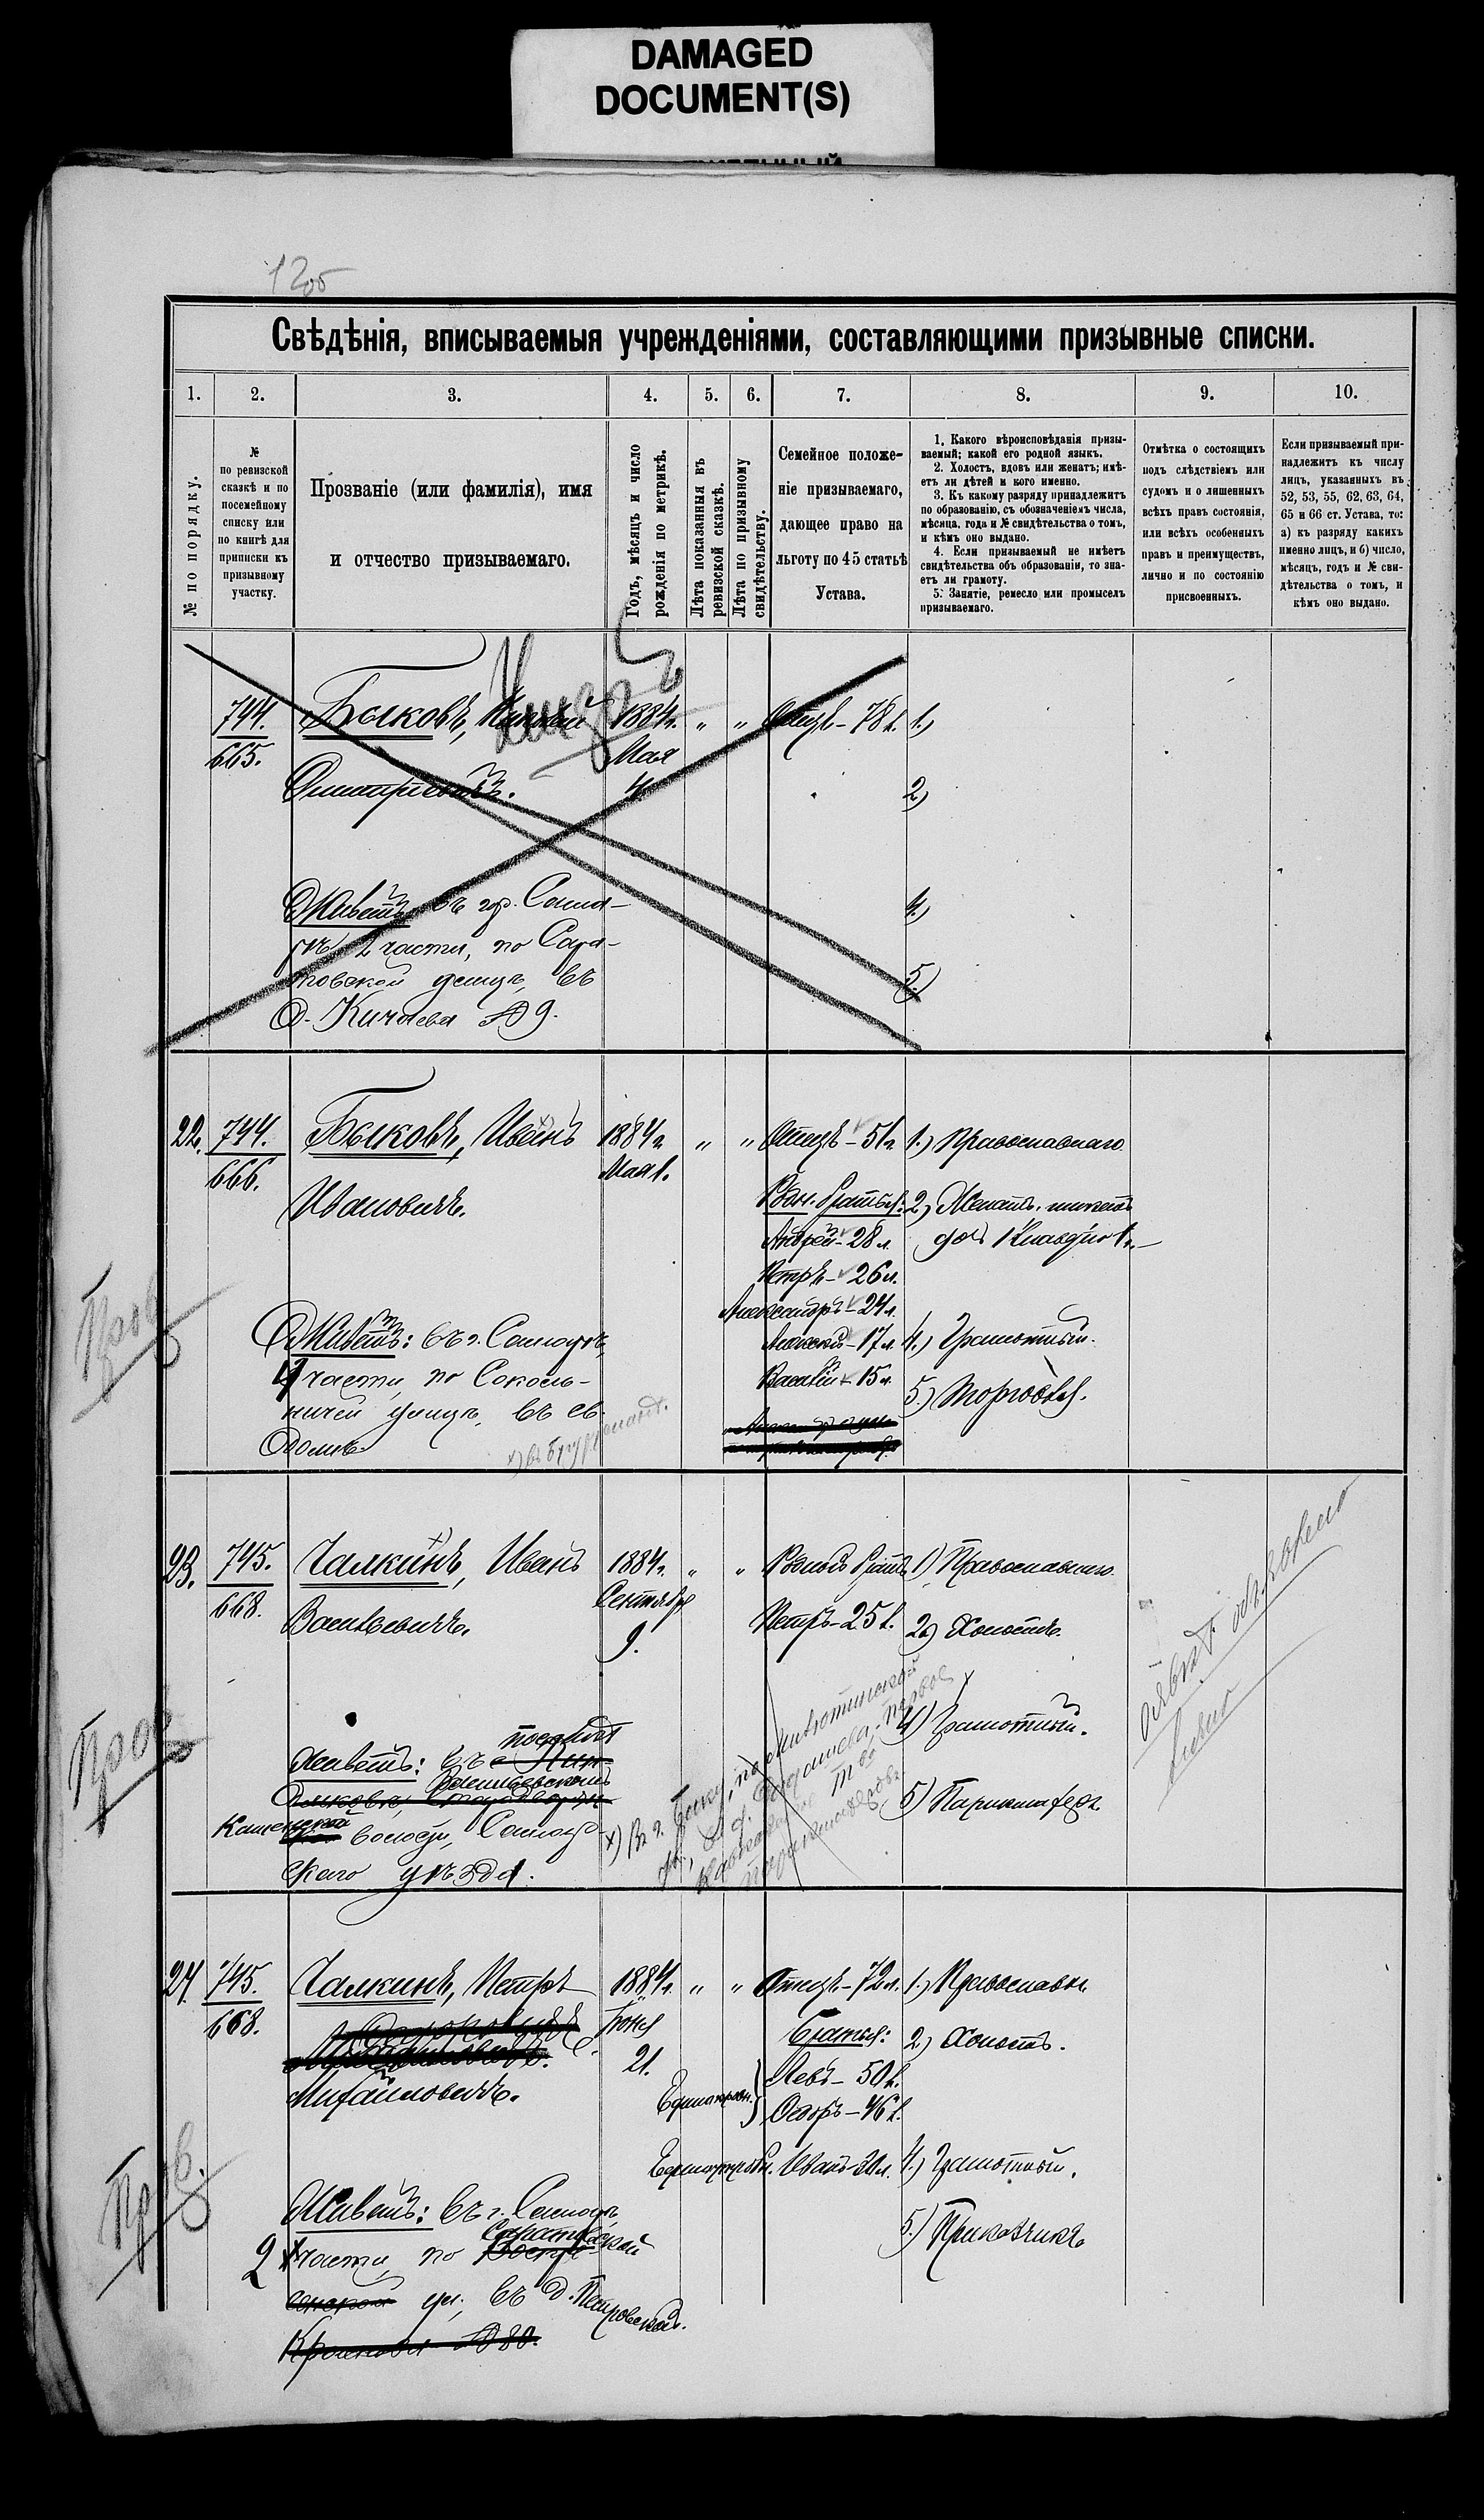 DAMAGED
DOCUMENT(S)
12об
Свѣдѣнія, вписываемыя учрежденіями, составляющими призывные списки.
1. 2. 3. 4. 5. 6. 7. 8. 9. 10.
№ по порядку.
№
по ревизской
сказкѣ и по
посемейному
списку или
по книгѣ для
приписки къ
призывному
участку.
Прозваніе (или фамилія), имя
и отчество призываемаго.
Годъ, мѣсяцъ и число
рожденія по метрикѣ.
Лѣта показанныя въ
ревизской сказкѣ.
Лѣта по призывному
свидѣтельству.
Семейное положе-
ніе призываемаго,
дающее право на
льготу по 45 статьѣ
Устава.
1. Какого вѣроисповѣданія призы-
ваемый; какой его родной языкъ.
2. Холостъ, вдовъ или женатъ; имѣ-
етъ ли дѣтей и кого именно.
3. Къ какому разряду принадлежитъ
по образованію, съ обозначеніемъ числа,
мѣсяца, года и № свидѣтельства о томъ,
и кѣмъ оно выдано.
4. Если призываемый не имѣетъ
свидѣтельства объ образованіи, то зна-
етъ ли грамоту.
5. Занятіе, ремесло или промыселъ
призываемаго.
Отмѣтка о состоящихъ
подъ слѣдствіемъ или
судомъ и о лишенныхъ
всѣхъ правъ состоянія,
или всѣхъ особенныхъ
правъ и преимуществъ,
лично и по состоянію
присвоенныхъ.
Если призываемый при-
надлежитъ къ числу
лицъ, указанныхъ въ
52, 53, 55, 62, 63, 64,
65 и 66 ст. Устава, то:
а) къ разряду какихъ
именно лицъ, и б) число,
мѣсяцъ, годъ и № сви-
дѣтельства о томъ, и
кѣмъ оно выдано.
744. Быковъ, 1884г. " " Отецъ – 78 л. 1.)
665. Мая
Дмитріевичъ. 4. 2.)
Живетъ въ гор. Сама- 4.)
рѣ 2 части, по Сара-
товской улицѣ, въ 5.)
д. Кичаева № 9.
22. 744. Быковъ, Иванъ 1884г. " " Отецъ – 51г. 1.) Православнаго
666. Мая 1.
Ивановичъ. Родн. братья: 2.) Женатъ, имѣетъ
Андрей – 28 л. дочь Клавдію 1 г. –
Петръ – 26 л.
Александръ – 24 л.
Живетъ: въ г. Самарѣ, Алексѣй – 17 л. 4.) Грамотный.
4 части, по Соколь- Василій – 15 л.
ничьей улицѣ, въ св. 5.) Торговля.
домѣ.
Пров
23. 745. Чалкинъ, Иванъ 1884г. " " Родной братъ 1) Православнаго
668. Сентября
Васильевичъ. 9. Петръ – 25 л. 2.) Холостъ.
4) Грамотный.
Живетъ: въ посадѣ
Васильевскомъ
Каменской волости, Самар- 5) Парикмахеръ
скаго уѣзда.
Пров
24. 745. Чалкинъ, Петръ 1884г. " " Отецъ – 72 л. 1.) Православн.
668. Іюня
21. Братья: 2.) Холостъ.
Михайловичъ. Левъ – 50 л.
Единокровн. Ѳедоръ – 46 л.
Единоутробн. Иванъ – 30 л. 4.) Грамотный.
Живетъ: въ г. Самарѣ, 5.) Прикащикъ
2 части, по Саратовской
ул., въ д. Петровской.
Пров.